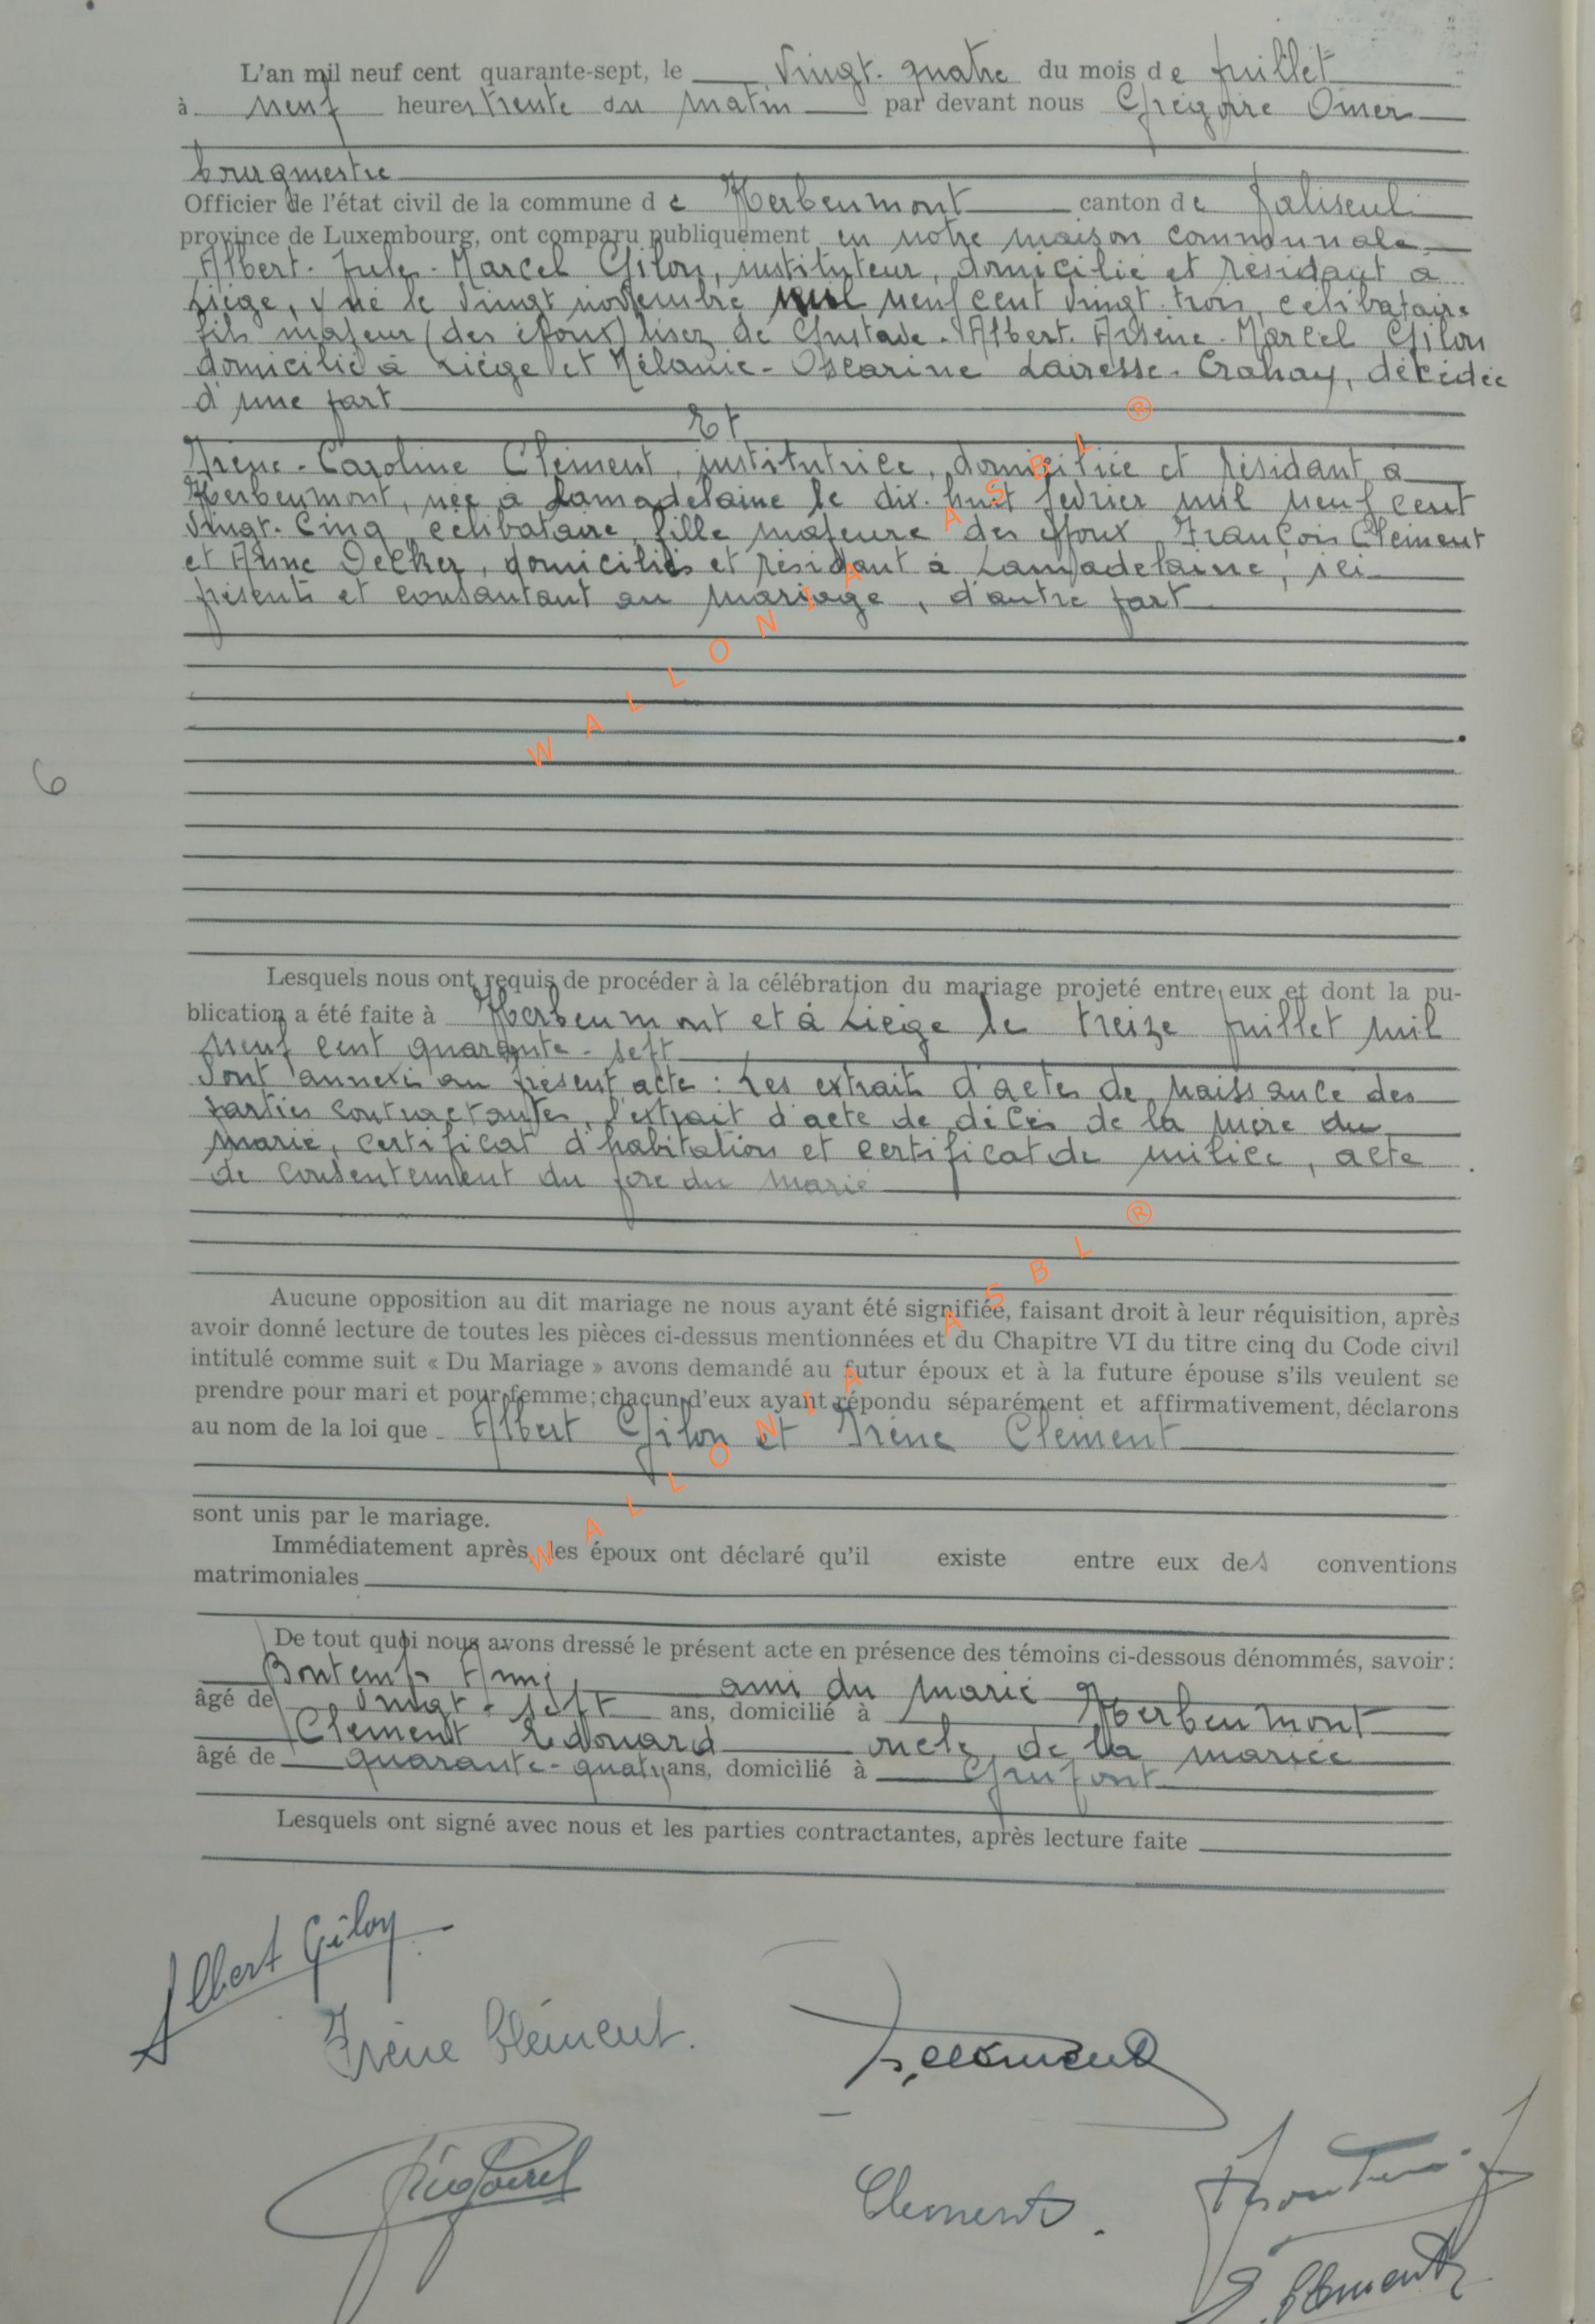 L'an mil neuf cent quarante-sept, le vingt-quatre du mois de juillet
à neuf heures trente du matin par devant nous Grégoire Omer
bourgmestre
Officier de l'état civil de la commune de Herbeumont canton de Paliseul
province de Luxembourg, ont comparu publiquement en notre maison communale
Albert-Jules-Marcel Gilon, instituteur, domicilié et résidant à
Liège, y né le vingt novembre mil neuf cent vingt-trois, célibataire
fils majeur (des époux) lisez de Gustave-Albert-Arsène-Marcel Gilon
domicilié à Liège et Mélanie-Oscarine Lairesse-Crahay, décédée
d'une part
Et
Irène-Caroline Clément, institutrice, domiciliée et résidant à
Herbeumont, née à Lamadelaine le dix-huit février mil neuf cent
vingt-cinq, célibataire, fille majeure des époux François Clément
et Anne Decker, domiciliés et résidant à Lamadelaine, ici
présents et consantant au mariage, d'autre part
6
Lesquels nous ont requis de procéder à la célébration du mariage projeté entre eux et dont la pu-
blication a été faite à Herbeumont et à Liège le treize juillet mil
neuf cent quarante-sept
Sont annexés au présent acte : Les extraits d'actes de naissance des
parties contractantes, l'extrait d'acte de décès de la mère du
marié, certificat d'habitation et certificat de milice, acte
de consentement du père du marié
Aucune opposition au dit mariage ne nous ayant été signifiée, faisant droit à leur réquisition, après
avoir donné lecture de toutes les pièces ci-dessus mentionnées et du Chapitre VI du titre cinq du Code civil
intitulé comme suit « Du Mariage » avons demandé au futur époux et à la future épouse s'ils veulent se
prendre pour mari et pour femme; chacun d'eux ayant répondu séparément et affirmativement, déclarons
au nom de la loi que Albert Gilon et Irène Clément
sont unis par le mariage.
Immédiatement après, les époux ont déclaré qu'il existe entre eux des conventions
matrimoniales
De tout quoi nous avons dressé le présent acte en présence des témoins ci-dessous dénommés, savoir :
Bontemps ami du marié
âgé de vingt-sept ans, domicilié à Herbeumont
Clément Edouard oncle de la mariée
âgé de quarante-quatre ans, domicilié à Grupont
Lesquels ont signé avec nous et les parties contractantes, après lecture faite
Albert Gilon
Irène Clément.
Clement
Clement.
E. Clement
WALLONIA ASBL ®
WALLONIA ASBL ®